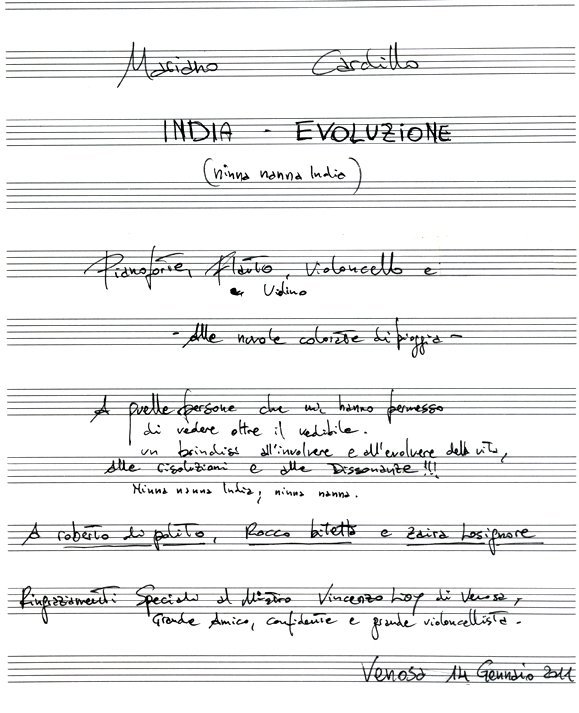 Mariano Cardillo
INDIA - EVOLUZIONE
(ninna nanna India)
Pianoforte, Flauto, Violoncello e
Violino
- Alle nuvole colorate di pioggia -
A quelle persone che mi hanno permesso
di vedere oltre il vedibile.
un brindisi all'involvere e all'evolvere della vita,
Alle risoluzioni e alle Dissonanze!!!
Ninna nanna India, ninna nanna.
A roberto di polito, Rocco bitetto e Zaira Losignore
Ringraziamenti Speciali al Maestro Vincenzo Lioy di Venosa,
Grande Amico, confidente e grande violoncellista.
Venosa 14 Gennaio 2011